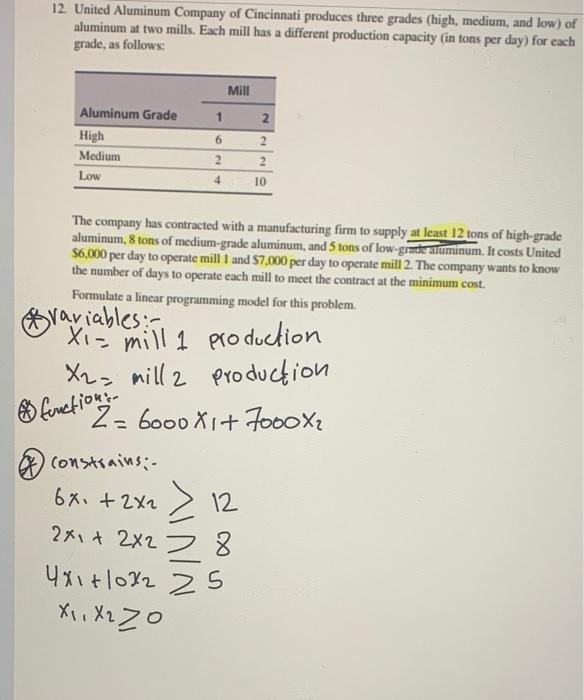 12. United Aluminum Company of Cincinnati produces three grades (high, medium, and low) of
aluminum at two mills. Each mill has a different production capacity (in tons per day) for each
grade, as follows:
Mill
Aluminum Grade 1 2
High 6 2
Medium 2 2
Low 4 10
The company has contracted with a manufacturing firm to supply at least 12 tons of high-grade
aluminum, 8 tons of medium-grade aluminum, and 5 tons of low-grade aluminum. It costs United
$6,000 per day to operate mill 1 and $7,000 per day to operate mill 2. The company wants to know
the number of days to operate each mill to meet the contract at the minimum cost.
Formulate a linear programming model for this problem.
* variables:-
X1 = mill 1 production
X2 = mill 2 production
* function:-
Z = 6000 X1 + 7000 X2
* constrains:-
6x1 + 2x2 ≥ 12
2x1 + 2x2 ≥ 8
4x1 + 10x2 ≥ 5
x1, x2 ≥ 0